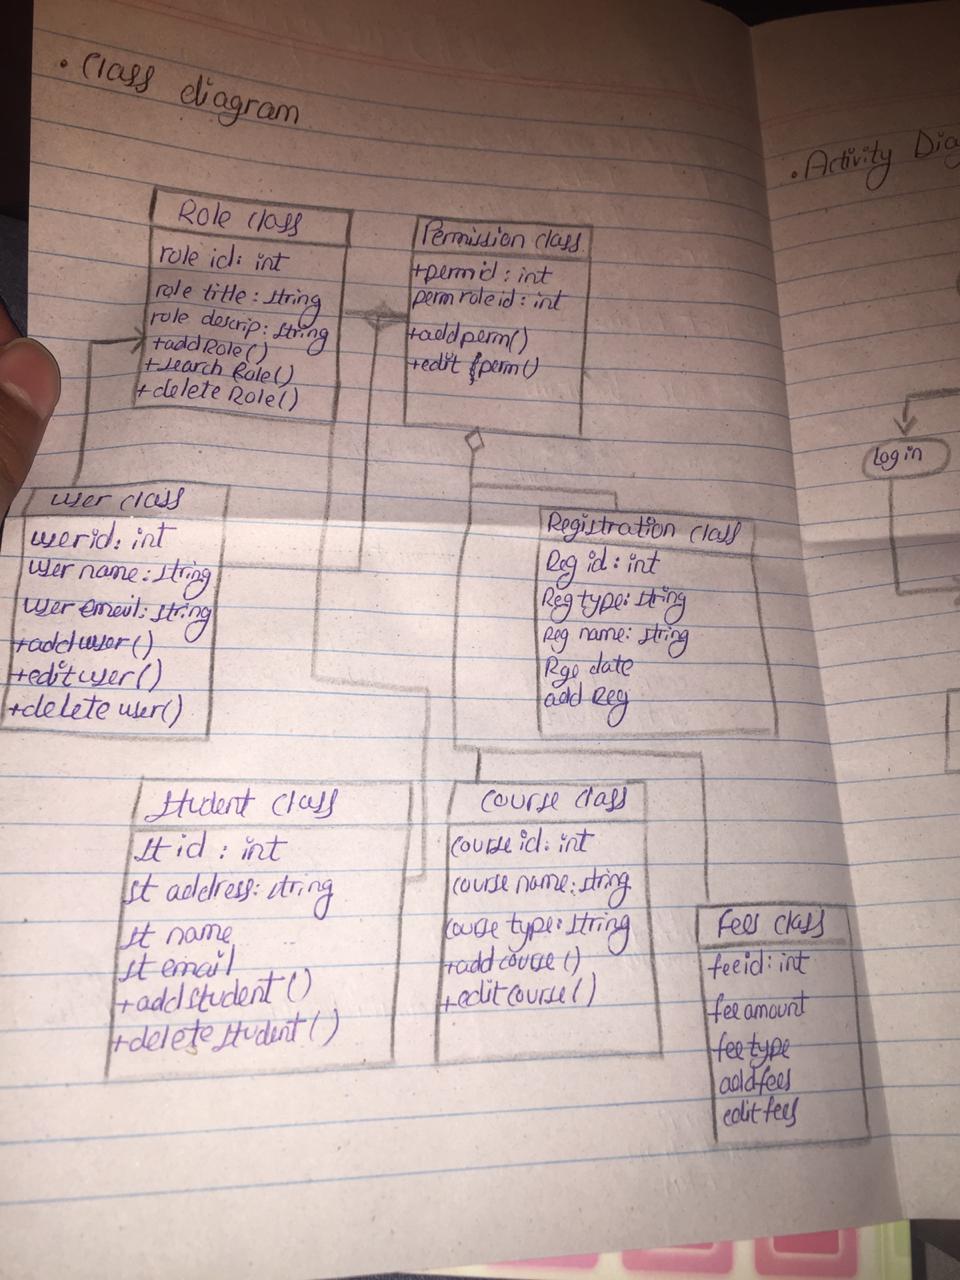 • Class diagram
Role class
role id: int
role title: string
role descrip: string
+addRole()
+search Role()
+delete Role()
Permission class
+perm id: int
perm role id: int
+addperm()
+edit perm()
user class
user id: int
user name: string
user email: string
+add user()
+edit user()
+delete user()
Registration class
Reg id: int
Reg type: string
Reg name: string
Rge date
add Reg
Student class
st id: int
st address: string
st name
st email
+addstudent()
+delete student()
Course class
course id: int
course name: string
course type: string
+add course()
+edit course()
Fees class
fee id: int
fee amount
fee type
add fees
edit fees
• Activity Dia
Login